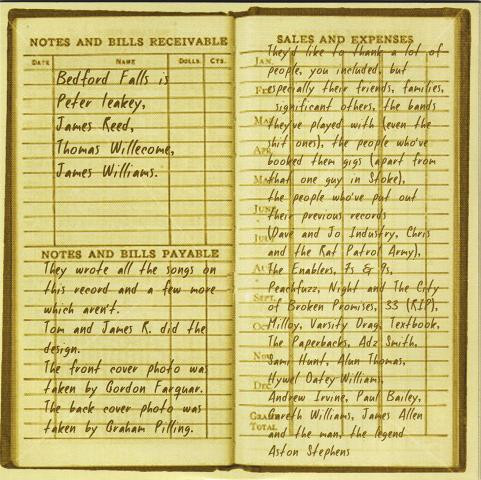 NOTES AND BILLS RECEIVABLE
DATE NAME DOLLS. CTS.
Bedford Falls is
Peter leakey,
James Reed,
Thomas Willecome,
James Williams.
NOTES AND BILLS PAYABLE
They wrote all the songs on
this record and a few more
which aren't.
Tom and James R. did the
design.
The front cover photo was
taken by Gordon Farquar.
The back cover photo was
taken by Graham Pilling.
SALES AND EXPENSES
They'd like to thank a lot of
JAN.
people, you included, but
especially their friends, families,
FEB.
significant others, the bands
MAR.
they've played with (even the
shit ones), the people who've
APR.
booked them gigs (apart from
MAY
that one guy in Stoke),
the people who've put out
JUNE
their previous records
(Dave and Jo Industry, Chris
JULY
and the Rat Patrol Army),
AUG.
The Enablers, 7s & 9s,
Peachfuzz, Night and The City
SEPT.
of Broken Promises, 33 (RIP),
OCT.
Milloy, Varsity Drag, Textbook,
The Paperbacks, Adz Smith,
NOV.
Sami Hunt, Alun Thomas,
Hywel Oatey-Williams,
DEC.
Andrew Irvine, Paul Bailey,
GRAND
Gareth Williams, James Allen
TOTAL
and the man, the legend
Aston Stephens